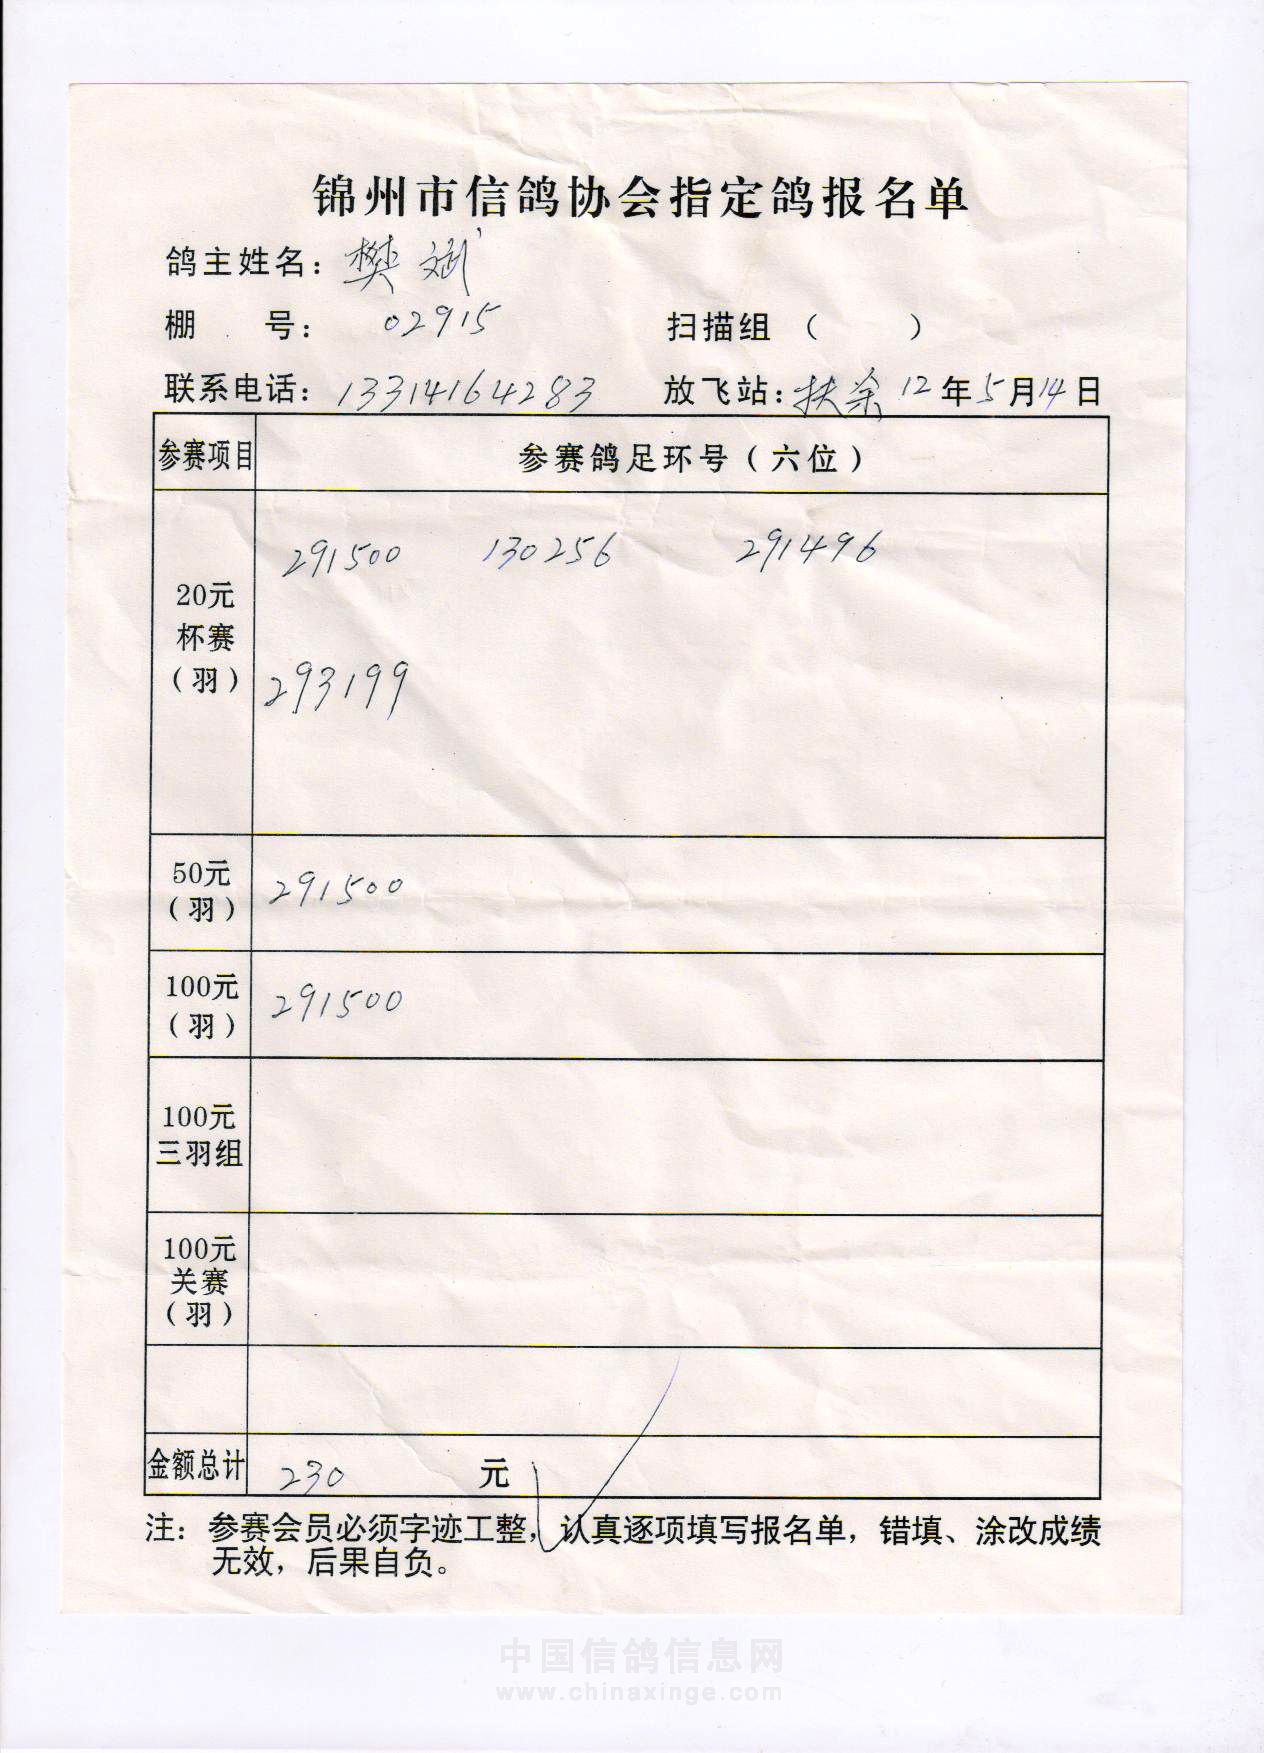 锦州市信鸽协会指定鸽报名单
鸽主姓名：樊斌
棚 号： 02915 扫描组（ ）
联系电话：13314164283 放飞站：扶余 12年5月14日
参赛项目 参赛鸽足环号（六位）
20元
杯赛
（羽）
291500 130256 291496
293199
50元
（羽）
291500
100元
（羽）
291500
100元
三羽组
100元
关赛
（羽）
金额总计 230 元
注：参赛会员必须字迹工整，认真逐项填写报名单，错填、涂改成绩
无效，后果自负。
中国信鸽信息网
www.chinaxinge.com